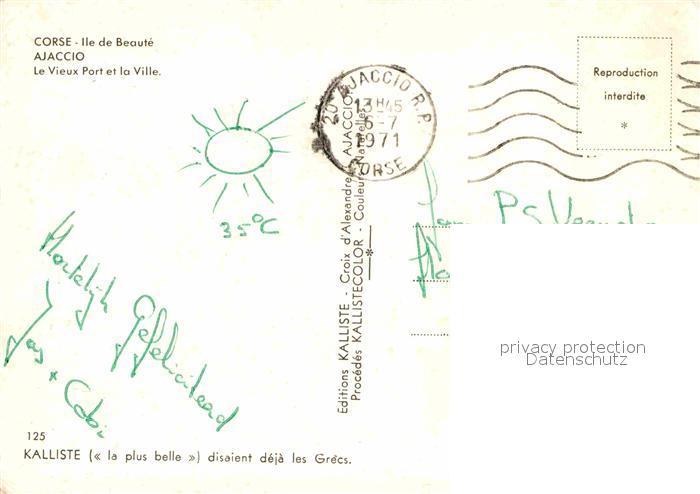 CORSE - Ile de Beauté
AJACCIO
Le Vieux Port et la Ville.
35°C
Hartelijk Gefeliciteerd
125
KALLISTE (« la plus belle ») disaient déjà les Grecs.
Editions KALLISTE - Croix d'Alexandre - AJACCIO
Procédés KALLISTECOLOR - Couleurs Naturelles
*
20 AJACCIO R.P.
13H45
6-7
1971
CORSE
Reproduction
interdite
*
privacy protection
Datenschutz